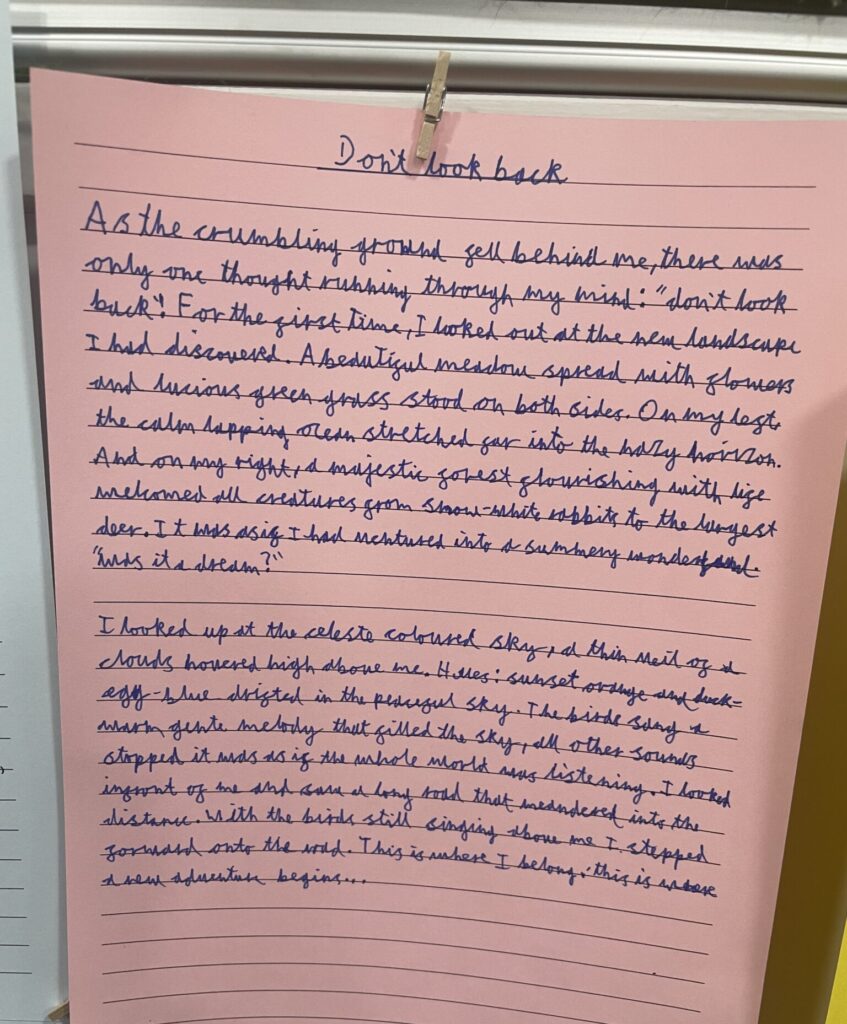 Don't look back
As the crumbling ground fell behind me, there was
only one thought running through my mind: "don't look
back"! For the first time, I looked out at the new landscape
I had discovered. A beautiful meadow spread with flowers
and lucious green grass stood on both sides. On my left,
the calm lapping ocean stretched far into the hazy horizon.
And on my right, a majestic forest flourishing with life
welcomed all creatures from snow-white rabbits to the largest
deer. It was as if I had ventured into a summery wonderland.
"was it a dream?"
I looked up at the celeste coloured sky, a thin veil of a
clouds hovered high above me. Hues: sunset orange and duck-
egg-blue drifted in the peaceful sky. The birds sang a
warm, gente melody that filled the sky, all other sounds
stopped it was as if the whole world was listening. I looked
infront of me and saw a long road that meandered into the
distance. With the birds still singing above me I stepped
forward onto the road. This is where I belong, this is where
a new adventure begins...